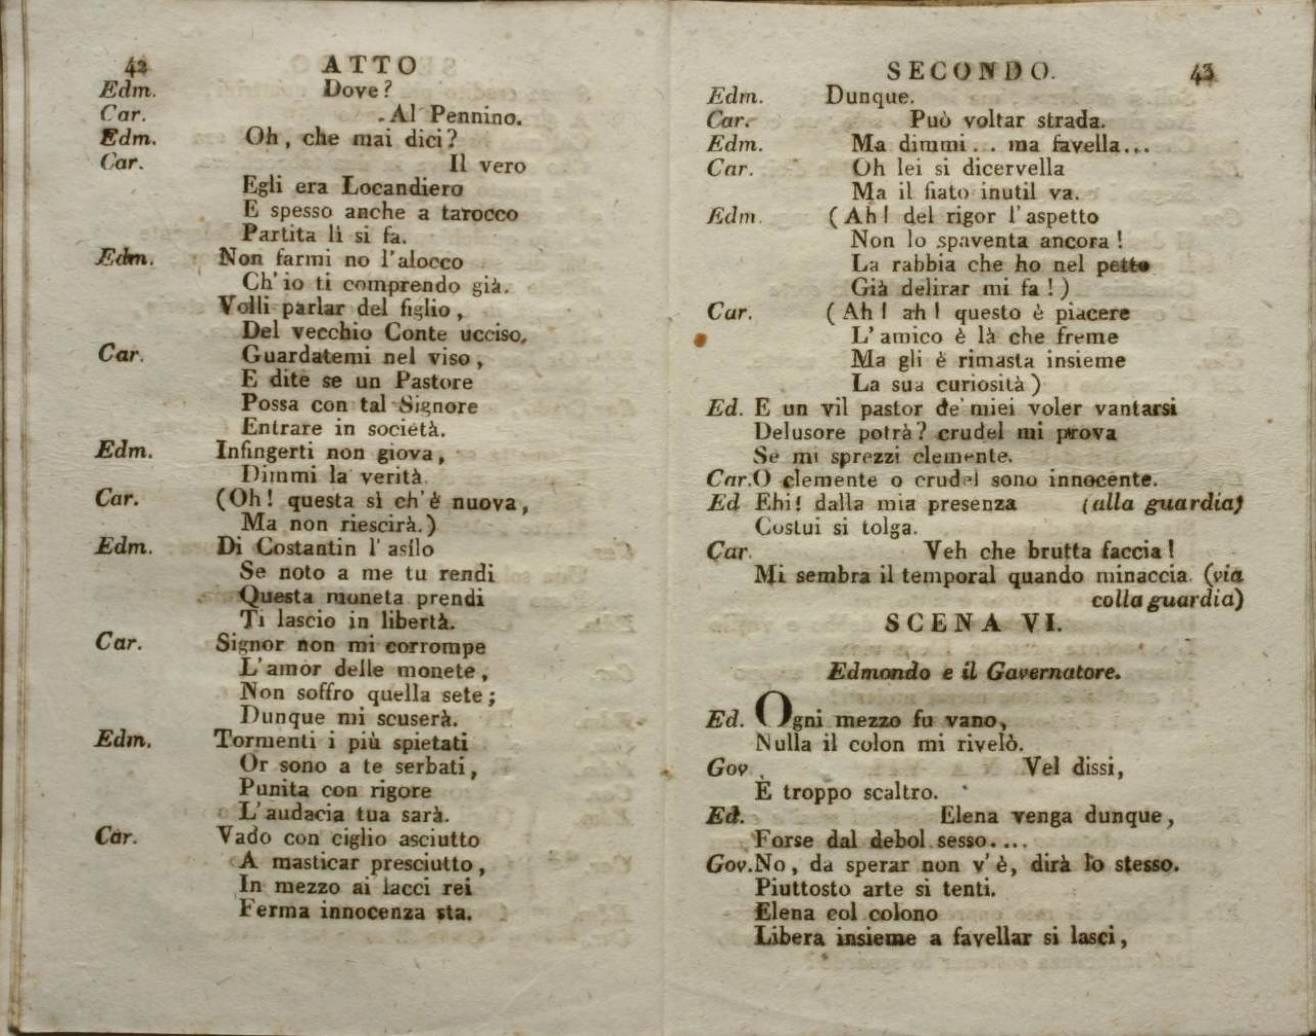 42 ATTO
Edm. Dove?
Car. Al Pennino.
Edm. Oh, che mai dici?
Car. Il vero
Egli era Locandiero
E spesso anche a tarocco
Partita lì si fa.
Edm. Non farmi no l'alocco
Ch'io ti comprendo già.
Volli parlar del figlio,
Del vecchio Conte ucciso.
Car. Guardatemi nel viso,
E dite se un Pastore
Possa con tal Signore
Entrare in società.
Edm. Infingerti non giova,
Dimmi la verità.
Car. (Oh! questa sì ch'è nuova,
Ma non riescirà.)
Edm. Di Costantin l'asilo
Se noto a me tu rendi
Questa moneta prendi
Ti lascio in libertà.
Car. Signor non mi corrompe
L'amor delle monete,
Non soffro quella sete;
Dunque mi scuserà.
Edm. Tormenti i più spietati
Or sono a te serbati,
Punita con rigore
L'audacia tua sarà.
Car. Vado con ciglio asciutto
A masticar presciutto,
In mezzo ai lacci rei
Ferma innocenza sta.
SECONDO. 43
Edm. Dunque.
Car. Può voltar strada.
Edm. Ma dimmi.. ma favella...
Car. Oh lei si dicervella
Ma il fiato inutil va.
Edm. (Ah! del rigor l'aspetto
Non lo spaventa ancora!
La rabbia che ho nel petto
Già delirar mi fa!)
Car. (Ah! ah! questo è piacere
L'amico è là che freme
Ma gli è rimasta insieme
La sua curiosità)
Ed. E un vil pastor de' miei voler vantarsi
Delusore potrà? crudel mi prova
Se mi sprezzi clemente.
Car. O clemente o crudel sono innocente.
Ed Ehi! dalla mia presenza (alla guardia)
Costui si tolga.
Car. Veh che brutta faccia!
Mi sembra il temporal quando minaccia. (via
colla guardia)
SCENA VI.
Edmondo e il Gavernatore.
Ed. Ogni mezzo fu vano,
Nulla il colon mi rivelò.
Gov. Vel dissi,
È troppo scaltro.
Ed. Elena venga dunque,
Forse dal debol sesso....
Gov. No, da sperar non v'è, dirà lo stesso.
Piuttosto arte si tenti.
Elena col colono
Libera insieme a favellar si lasci,